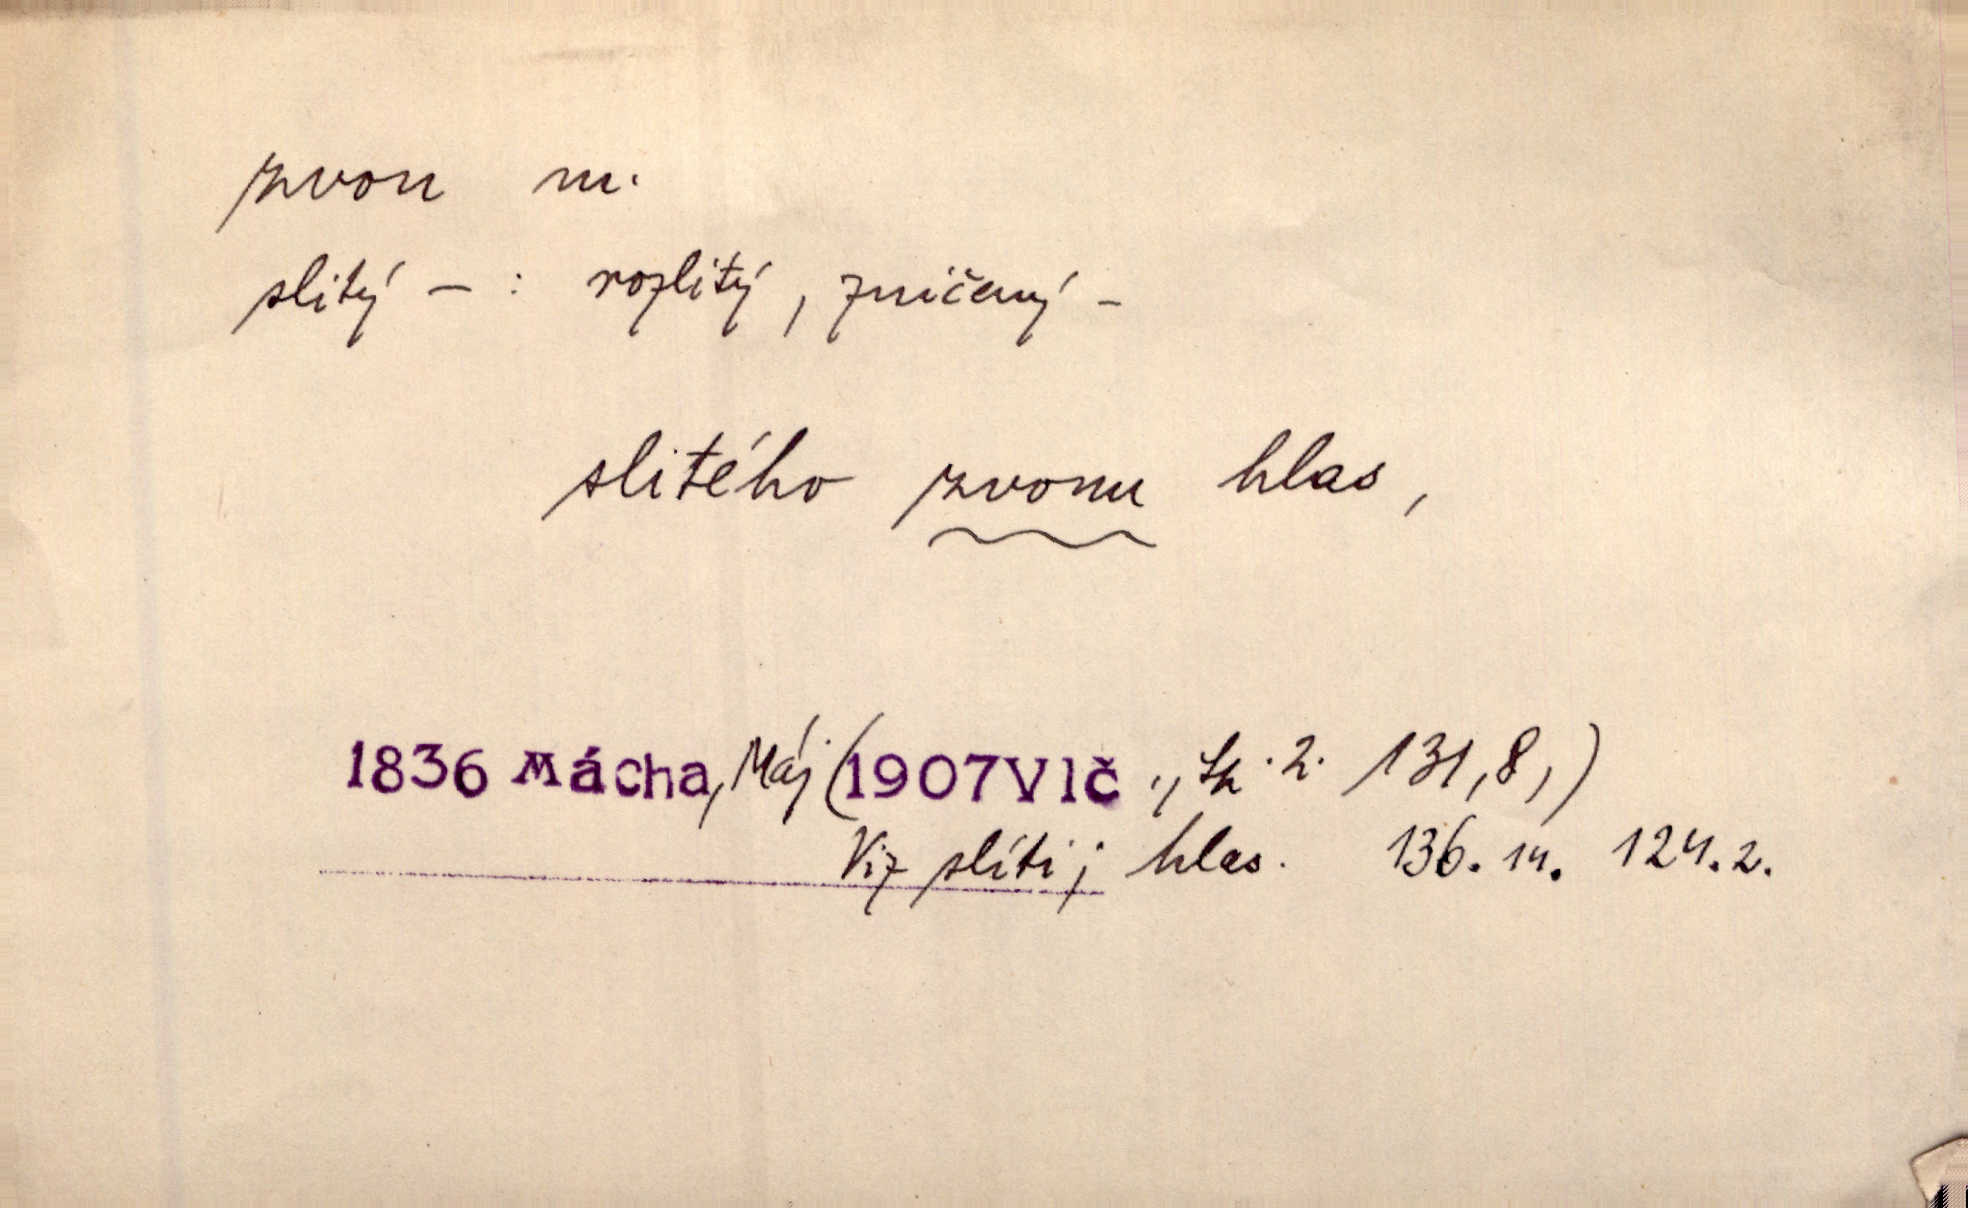 zvon m.
slitý – : rozlitý, zničený –
slitého zvonu hlas,
1836 Mácha, Máj (1907 Vlč., sv. 2. 131,8,)
Viz slíti; hlas. 136. 14. 124. 2.